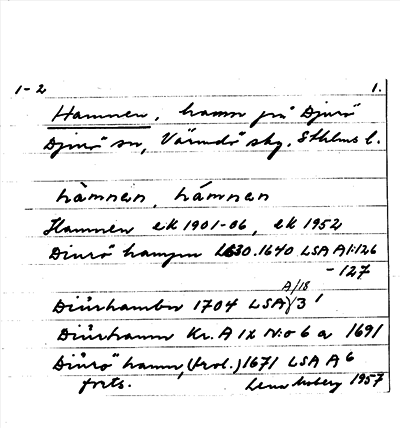 1-2 1.
Hamnen, hamn på Djurö
Djurö sn, Värmdö skg, Sthlms l.
hàmnen, hámnen
Hamnen ek 1901-06, ek 1952
Diurö hampn 1630.1640 LSA A1:126
-127
A/18
Diürhambn 1704 LSA 3'
Diürhamn Kr. A 12 N:o 6 a 1691
Diürö hamn, 1671 LSA A 6
forts. Lena Moberg 1957